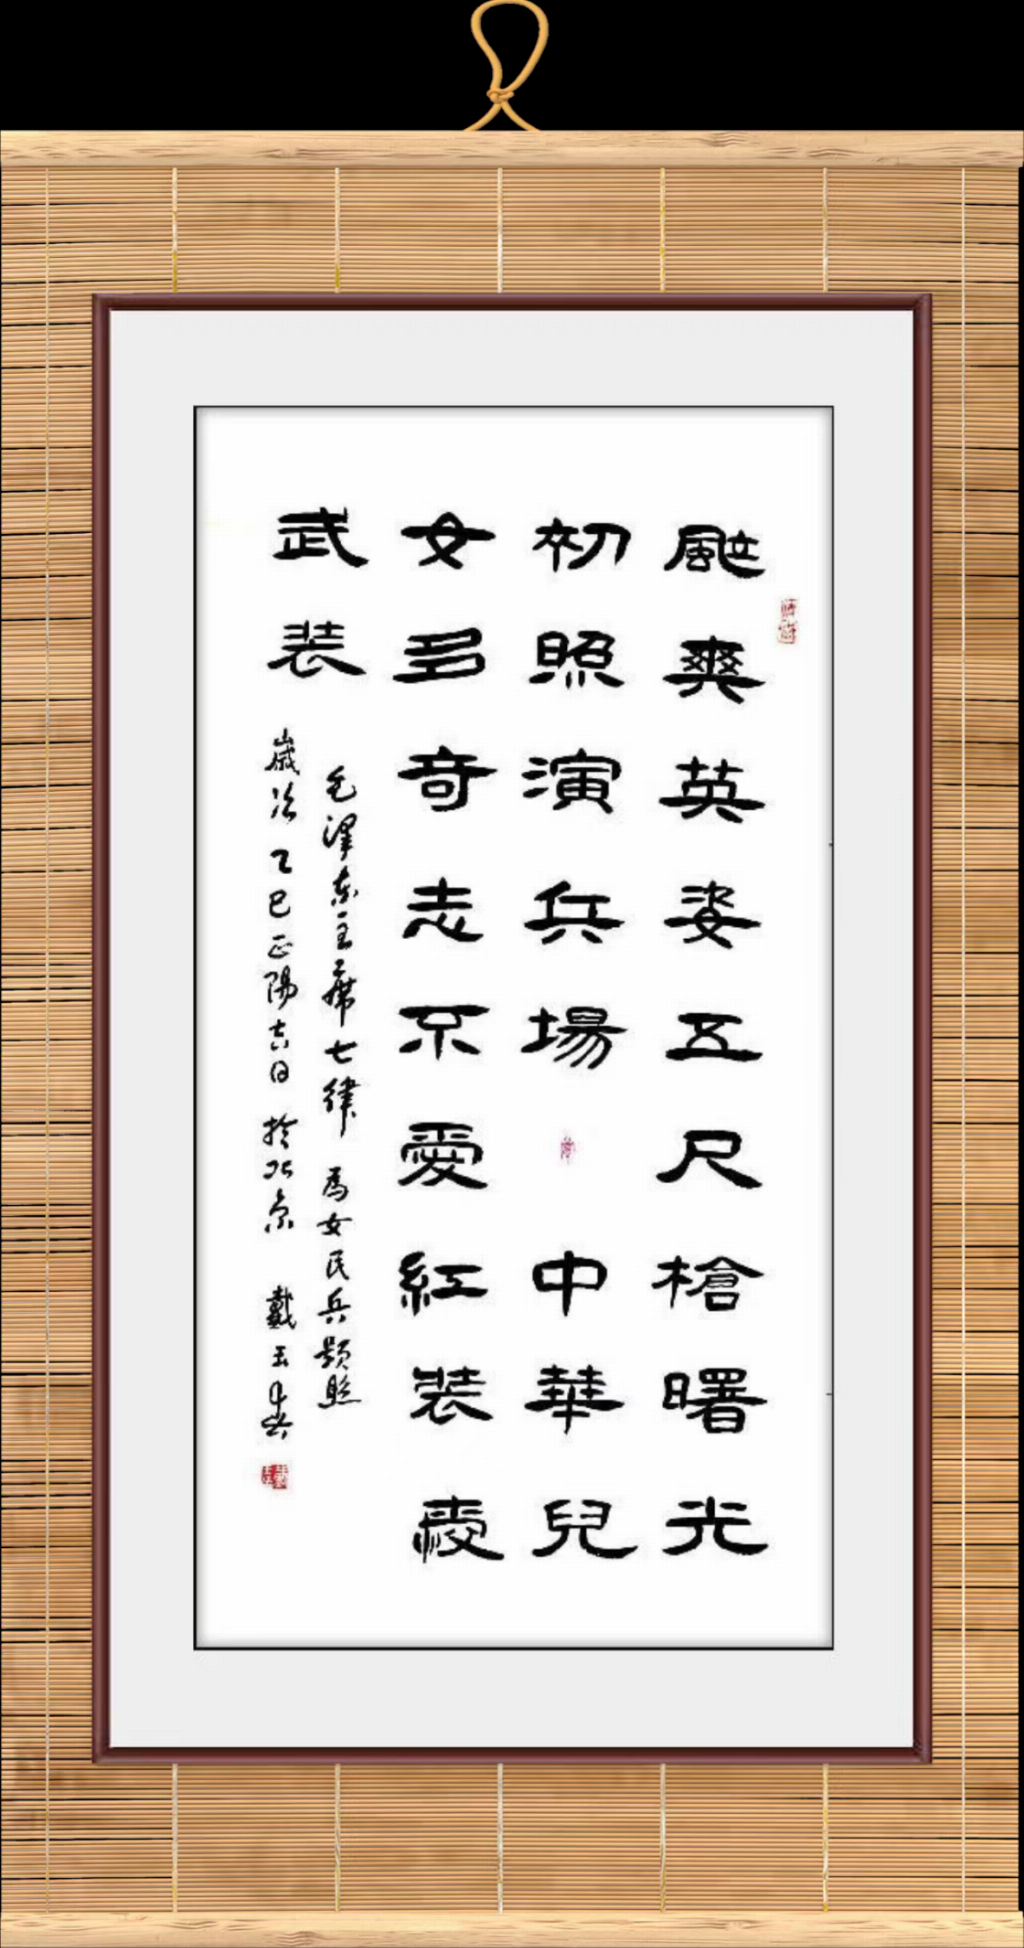 颯爽英姿五尺槍曙光
初照演兵場 中華兒
女多奇志不愛紅装愛
武装
毛澤东主席七律 為女民兵题照
歲次乙巳正陽吉日 於北京 戴玉